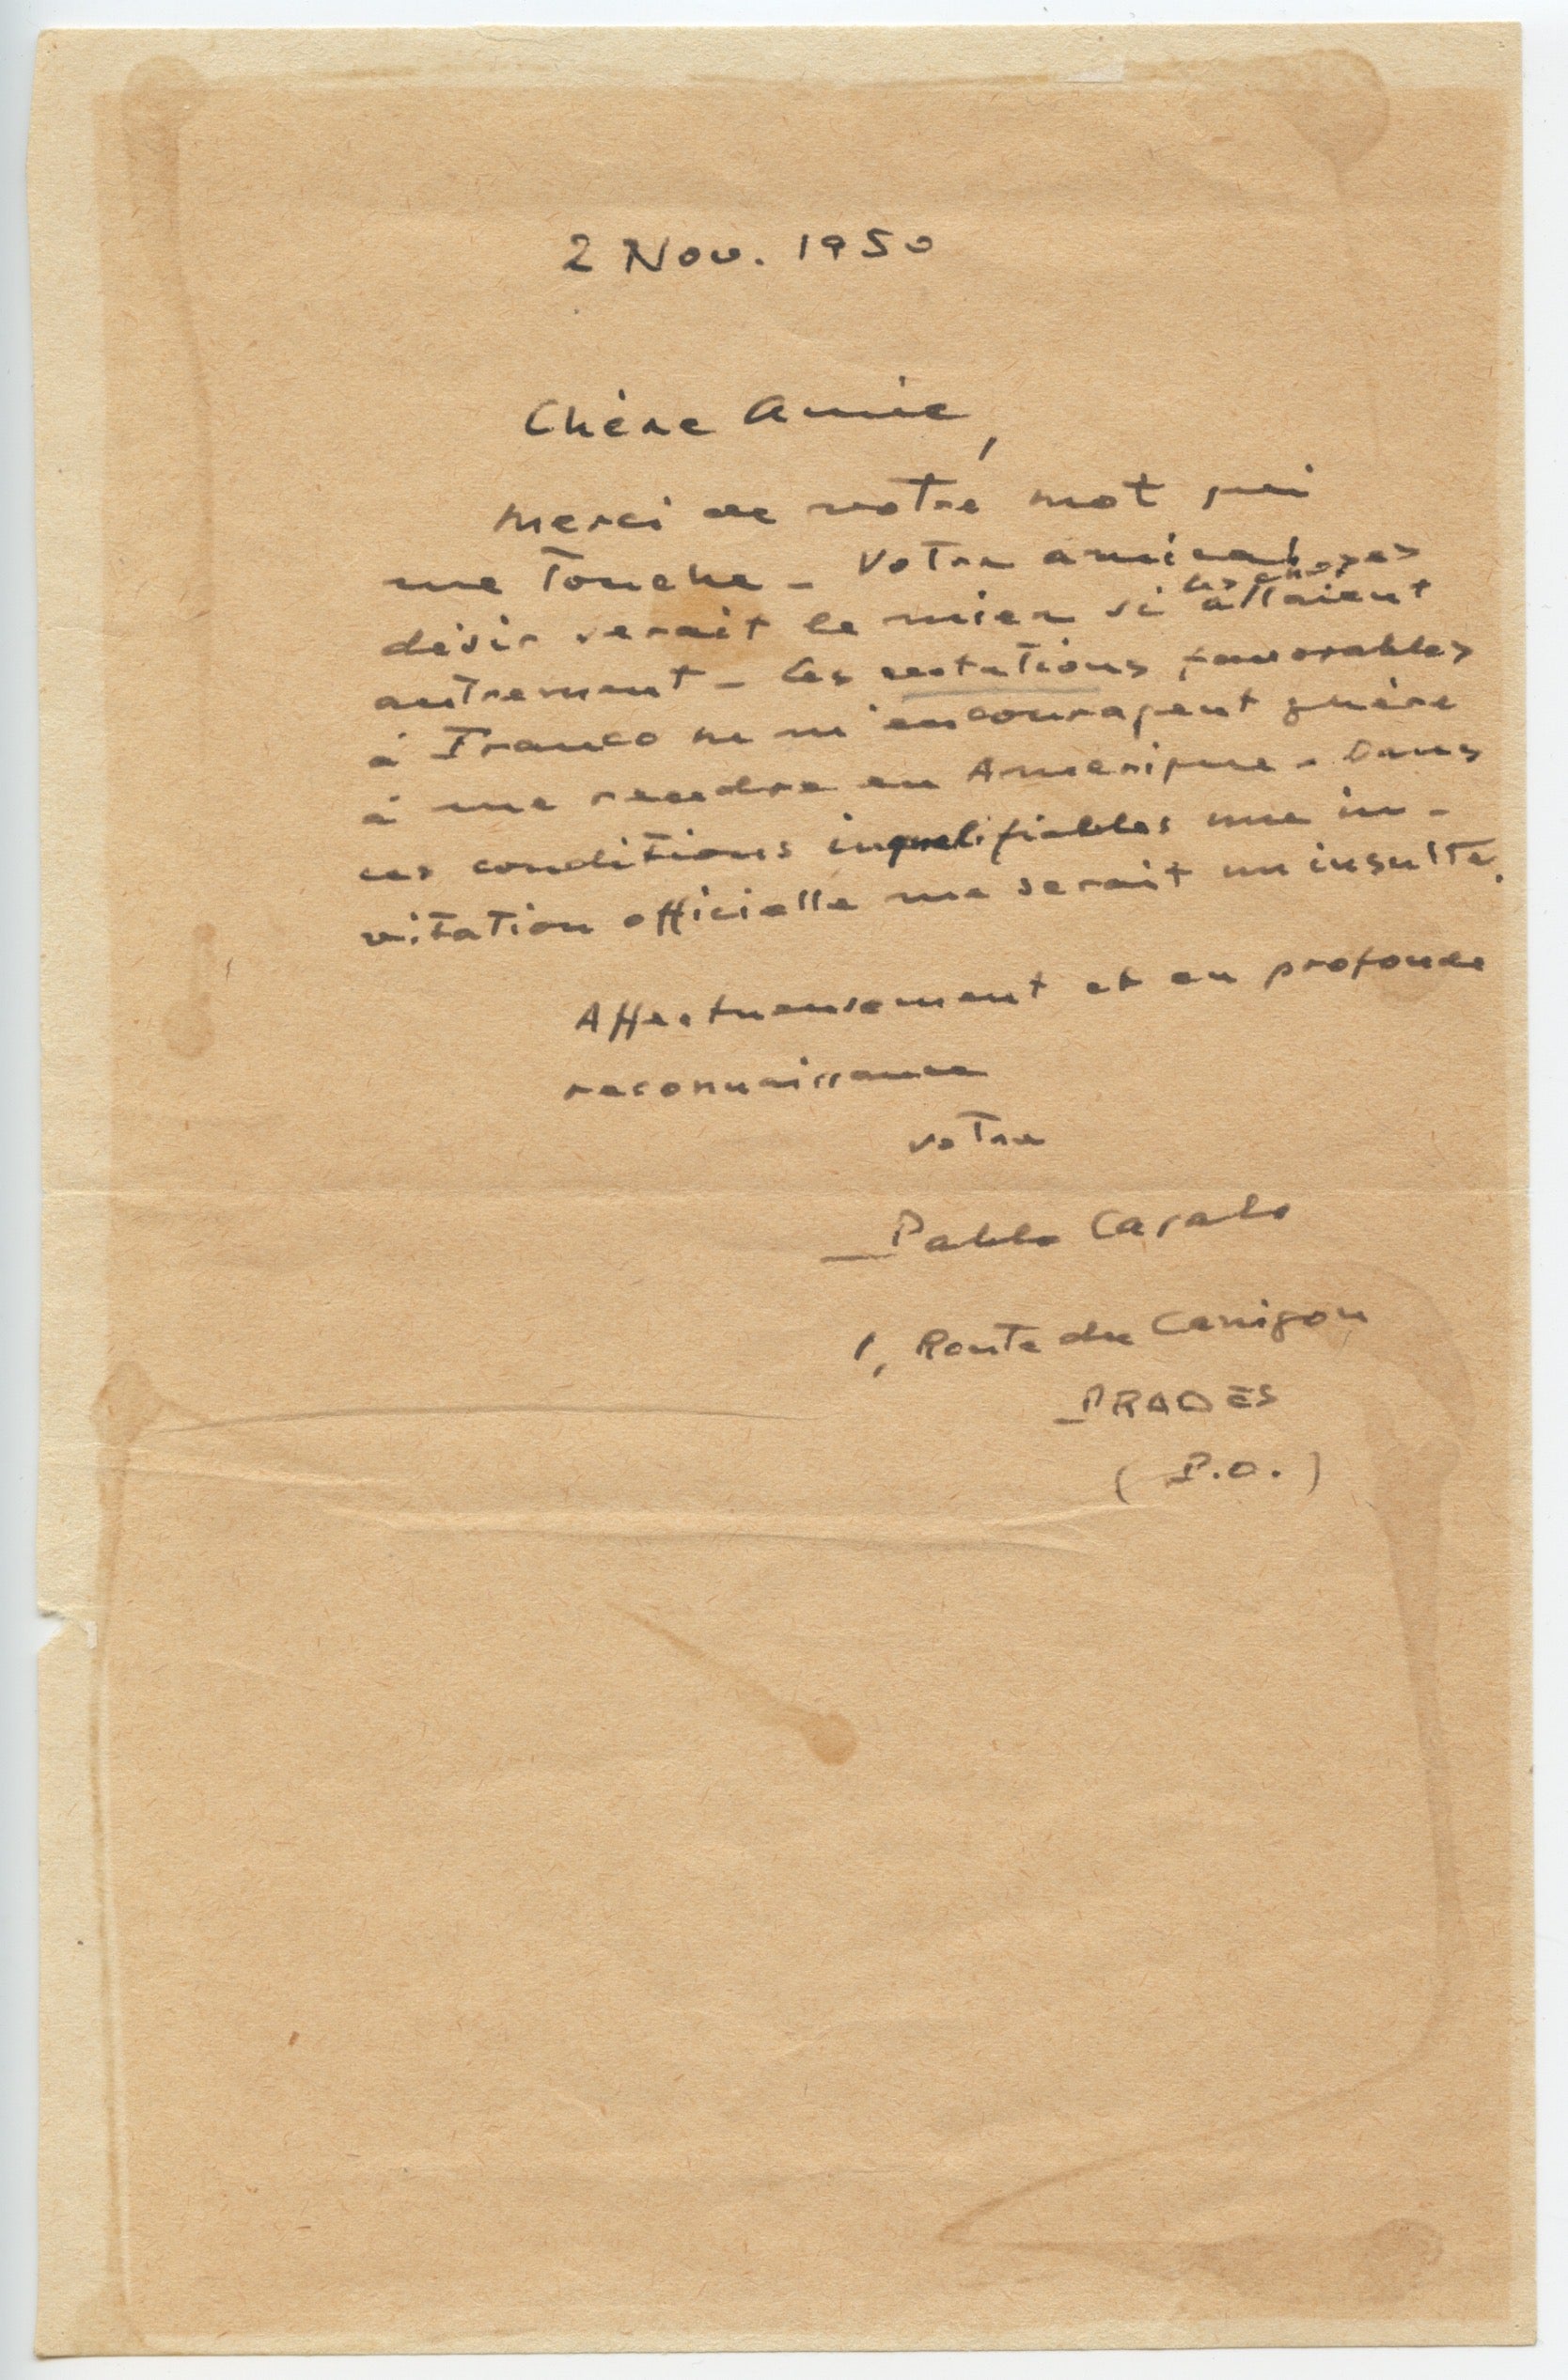 2 Nov. 1950
Chère Amie,
Merci de votre mot qui
me touche – Votre amical
désir serait le mien si les choses allaient
autrement – Les votations favorables
à Franco ne m'encouragent guère
à me rendre en Amerique – Dans
ces conditions inqualifiables une in-
vitation officielle me serait un insulte.
Affectueusement et en profonde
reconnaissance
votre
Pablo Casals
1, Route du Canigou
PRADES
(P.O.)